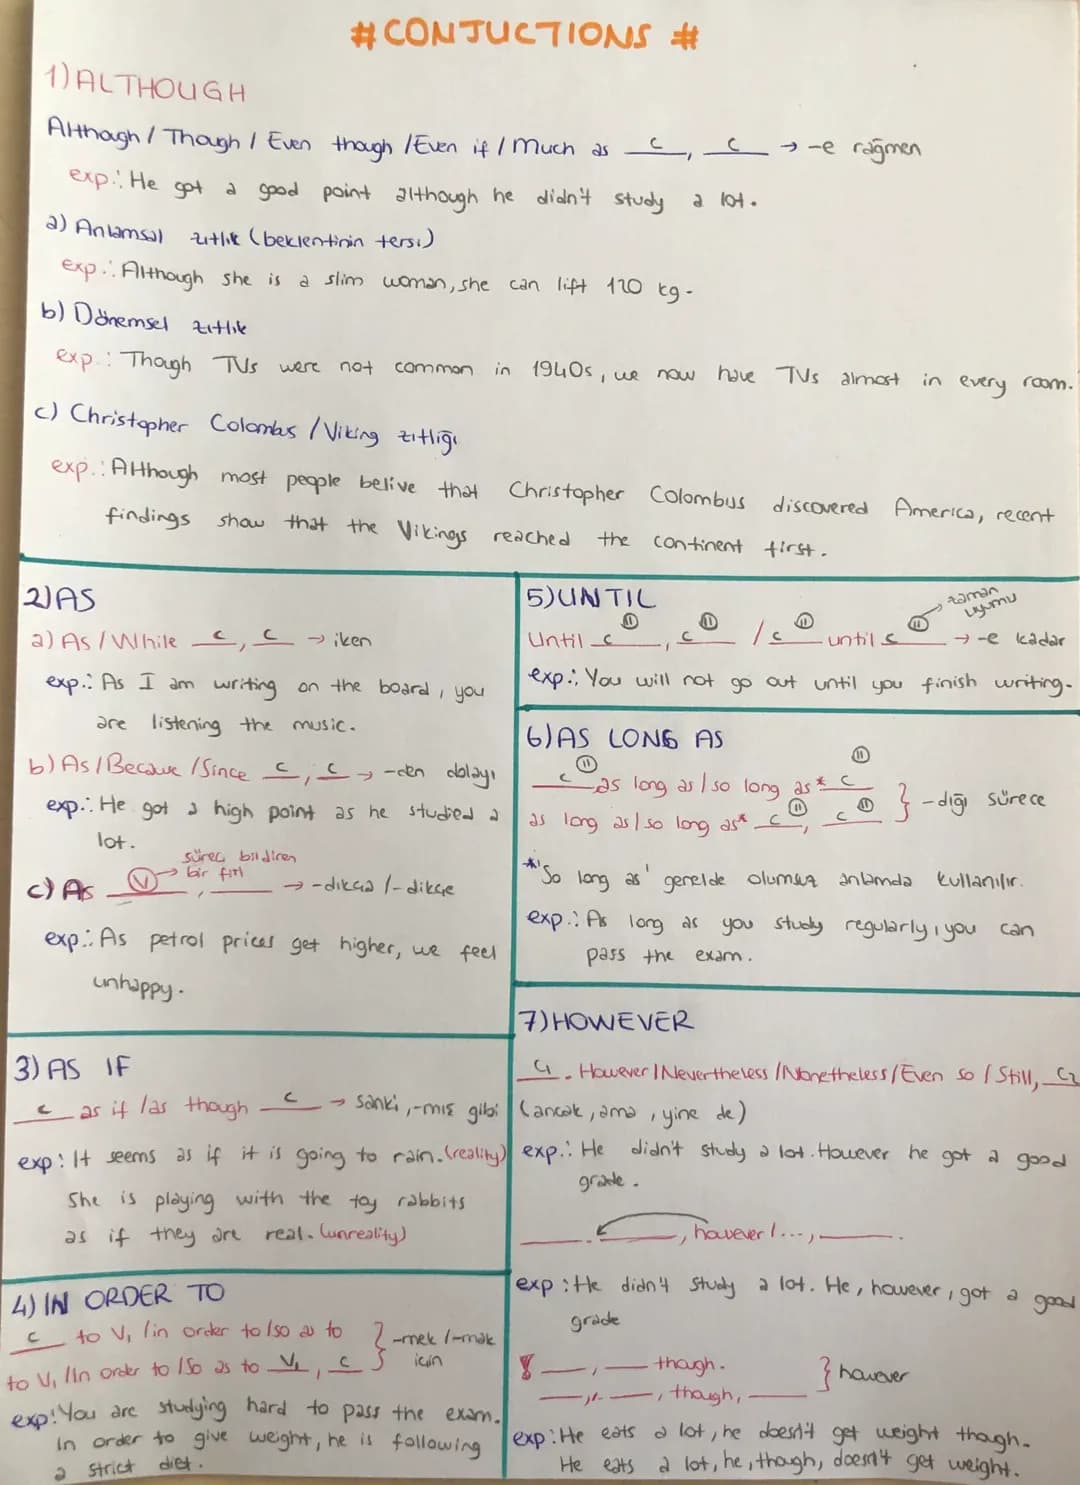 # CONJUCTIONS #
1) ALTHOUGH
Although / Though / Even though / Even if / Much as c , c → -e rağmen
exp.: He got a good point although he didn't study a lot.
a) Anlamsal zıtlık (beklentinin tersi)
exp.: Although she is a slim woman, she can lift 120 kg.
b) Dönemsel zıtlık
exp.: Though TVs were not common in 1940s, we now have TVs almost in every room.
c) Christopher Colombus / Viking zıtlığı
exp.: Although most people belive that Christopher Colombus discovered America, recent
findings show that the Vikings reached the continent first.
2) AS
a) As / While c , c → iken
exp.: As I am writing on the board, you
are listening the music.
b) As / Because / Since c , c → -den dolayı
exp.: He got a high point as he studied a
lot.
süreç bildiren
bir fiil
c) As V , → -dıkça / -dikçe
exp.: As petrol prices get higher, we feel
unhappy.
3) AS IF
c as if / as though c → sanki, -mış gibi
exp: It seems as if it is going to rain. (reality)
She is playing with the toy rabbits
as if they are real. (unreality)
4) IN ORDER TO
c to V1 / in order to / so as to } -mek / -mak
to V1 / In order to / So as to V1 , c } için
exp: You are studying hard to pass the exam.
In order to give weight, he is following
a strict diet.
5) UNTIL
zaman
uyumu
Until c , c / c until c → -e kadar
exp.: You will not go out until you finish writing.
6) AS LONG AS
c as long as / so long as* c
as long as / so long as* c , c } -dığı sürece
*'So long as' genelde olumsuz anlamda kullanılır.
exp.: As long as you study regularly, you can
pass the exam.
7) HOWEVER
C1 . However / Nevertheless / Nonetheless / Even so / Still, C2
(ancak, ama, yine de)
exp.: He didn't study a lot. However he got a good
grade.
. , however / ..., .
exp: He didn't study a lot. He, however, got a good
grade
, though.
, , though, } however
exp: He eats a lot, he doesn't get weight though.
He eats a lot, he, though, doesn't get weight.